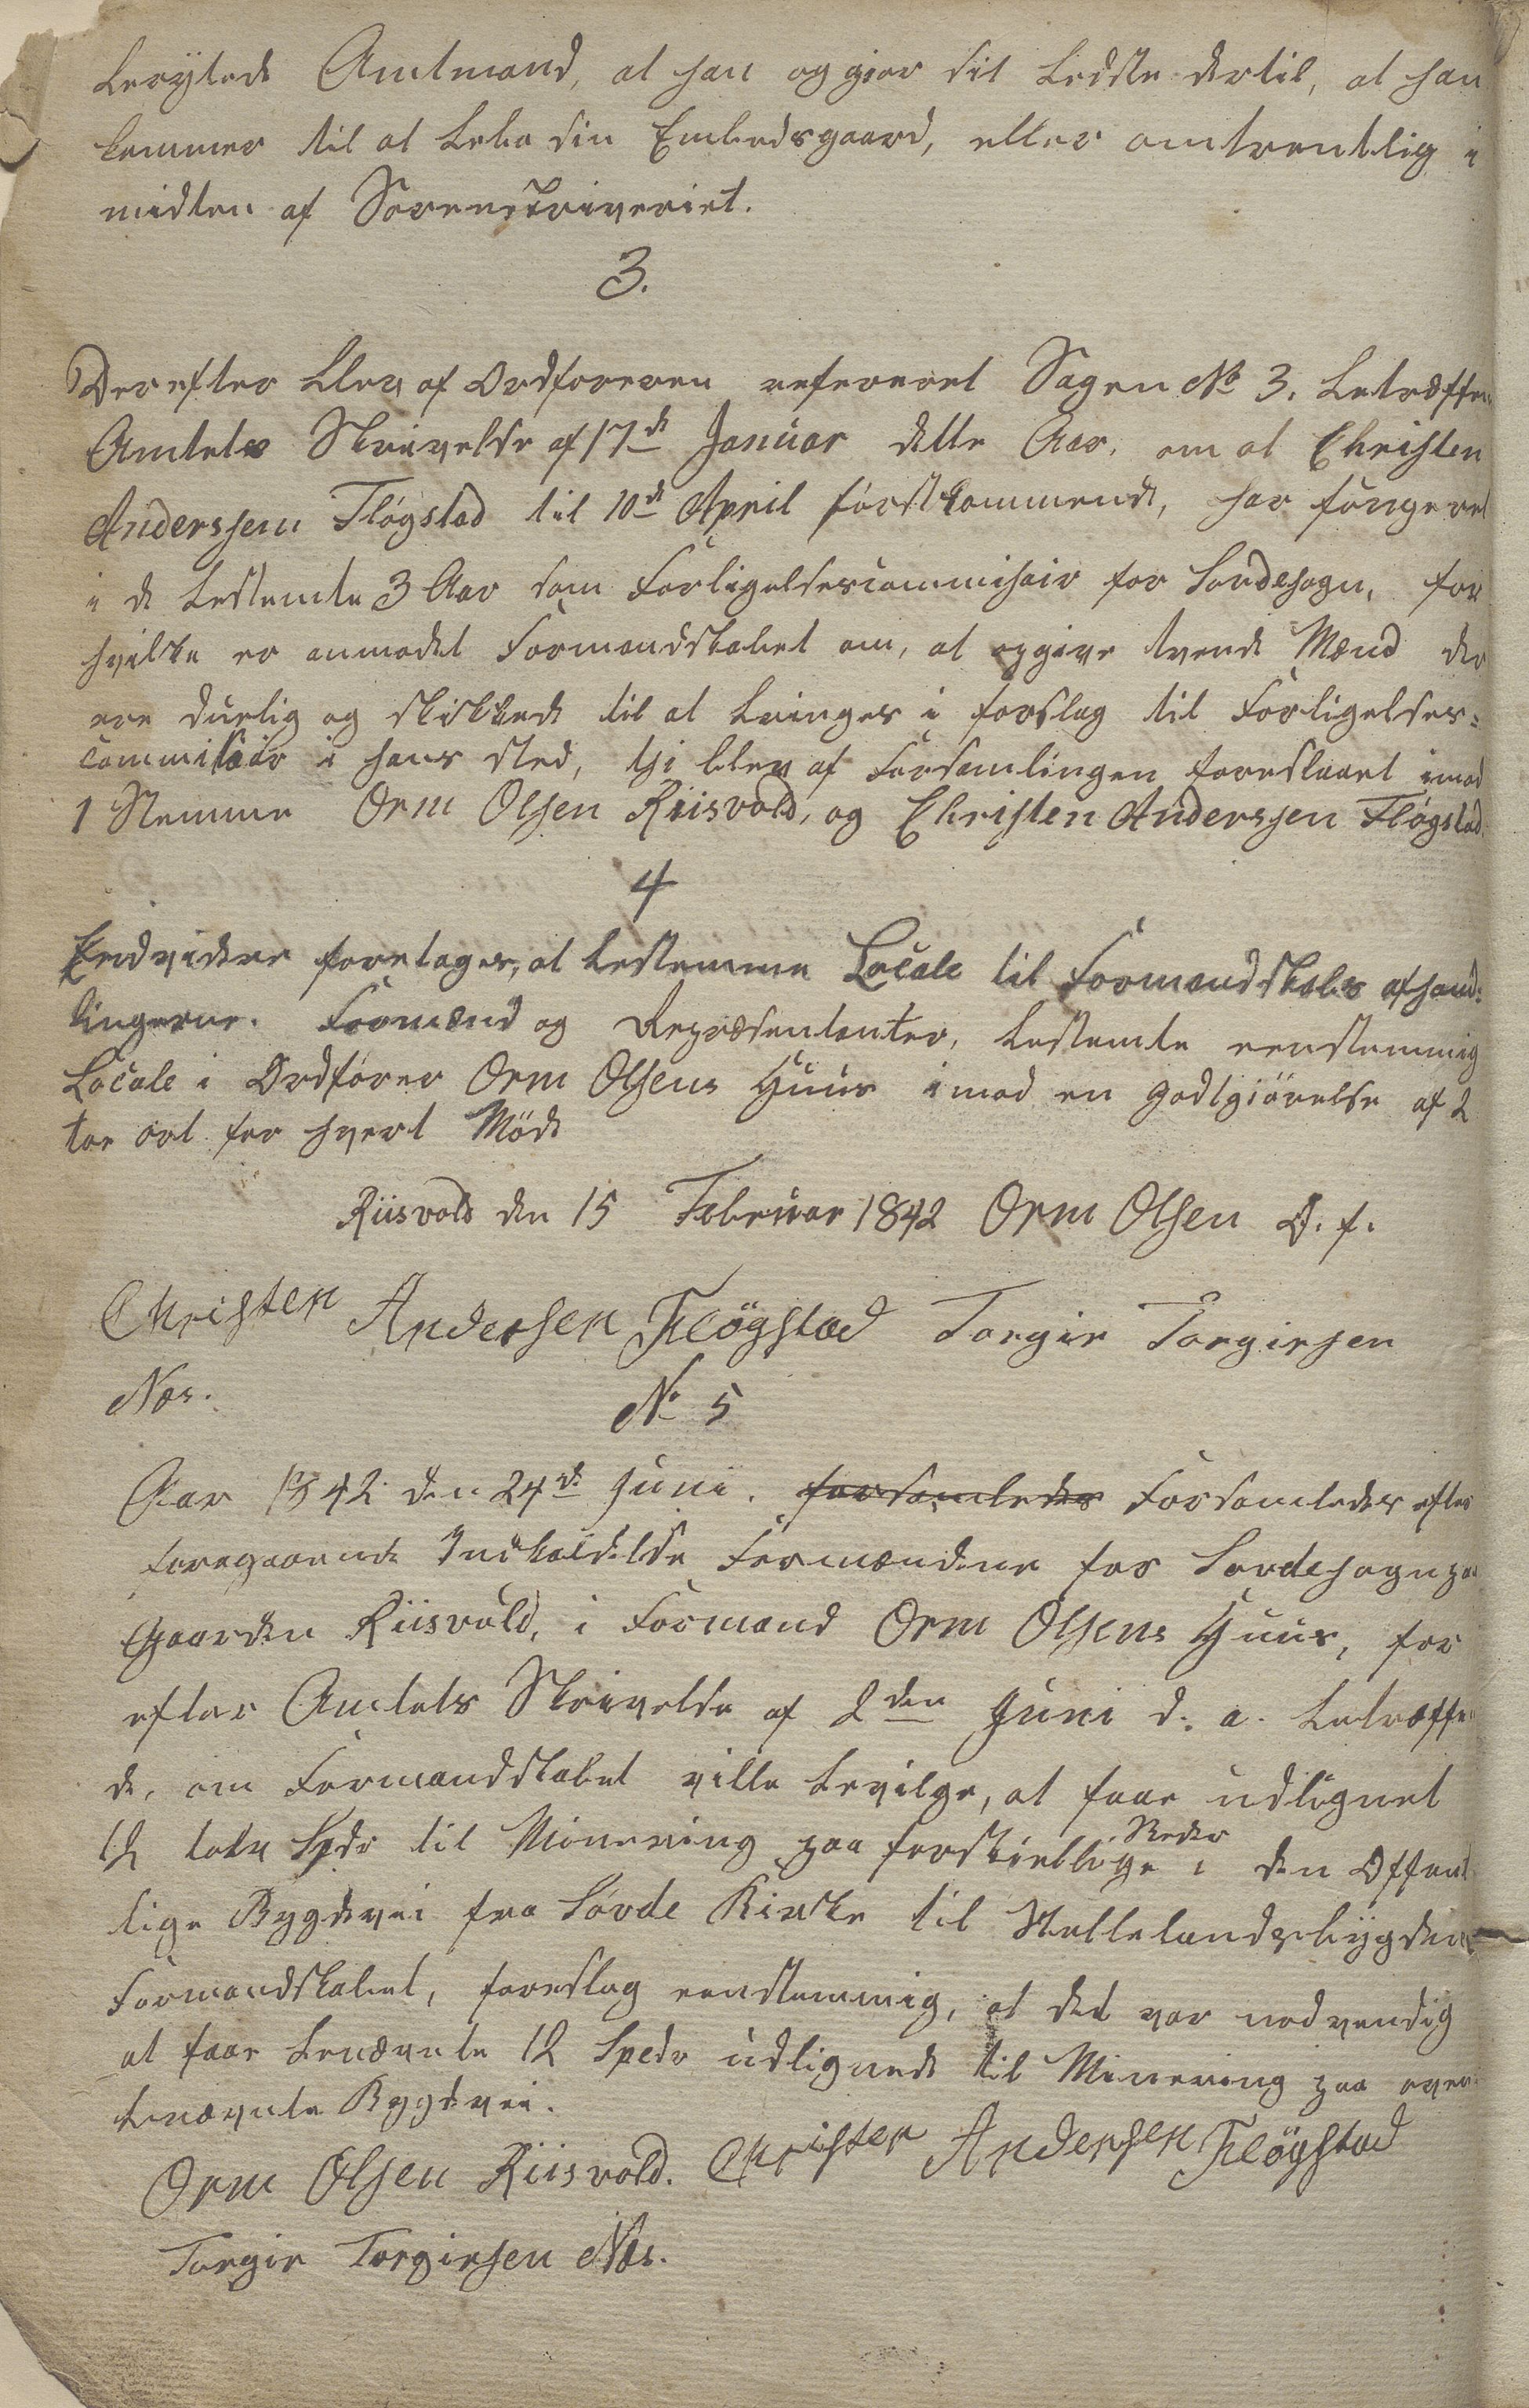 berygtede Amtmand, at han og gjør sit bedste dertil, at han
kommer til at beboe sin Embedsgaard, eller omtrentlig i
midten af Sorenskriveriet.
3.
Derefter blev af Ordføreren refereret Sagen No 3. betræffen
Amtets Skrivelse af 17de Januar dette Aar, om at Christen
Anderssen Fløgstad til 10de April førstkommende, har fungeret
i de bestemte 3 Aar som Forligelsescommisair for Sovdesogn, for
hvilke er anmodet Formandskabet om, at opgive tvende Mænd der
ere duelig og skikkede til at bringes i forslag til Forligelses=
commissair i hans sted, thi blev af Forsamlingen foreslaaet imod
1 Stemme Orm Olsen Riisvold, og Christen Anderssen Fløgstad.
4
Endvidere foretages, at bestemme Locale til Formandskabs afhand=
lingerne. Formænd og Repræsentanter, bestemte eenstemmig
Locale i Ordfører Orm Olsens Huus imod en godtgiørelse af 2
toe ort for hvert Møde
Riisvold den 15 Februar 1842 Orm Olsen O. f.
Christen Andersen Fløgstad Torgir Torgirsen
Næs.
No 5
Aar 1842 den 24de Juni. forsamledes Forsamledes efter
foregaaende Indkaldelse Formændene for Sovdesogn paa
Gaarden Riisvold, i Formand Orm Olsens Huus, for
efter Amtets Skrivelse af 2den Juni d. a. betræffen
de, om Formandskabet ville bevilge, at faae udlignet
12 tolv Spdr til Minering paa forskiellige Steder i den Offent
lige Bygdevei fra Sovde Kirke til Hellelandsbygden
Formandskabet, foreslog eenstemmig, at det var nødvendig
at faae benævnte 12 Spedr udlignede til Minering paa oven
benævnte Bygdevei.
Orm Olsen Riisvold. Christen Andersen Fløgstad
Torgir Torgirsen Næs.